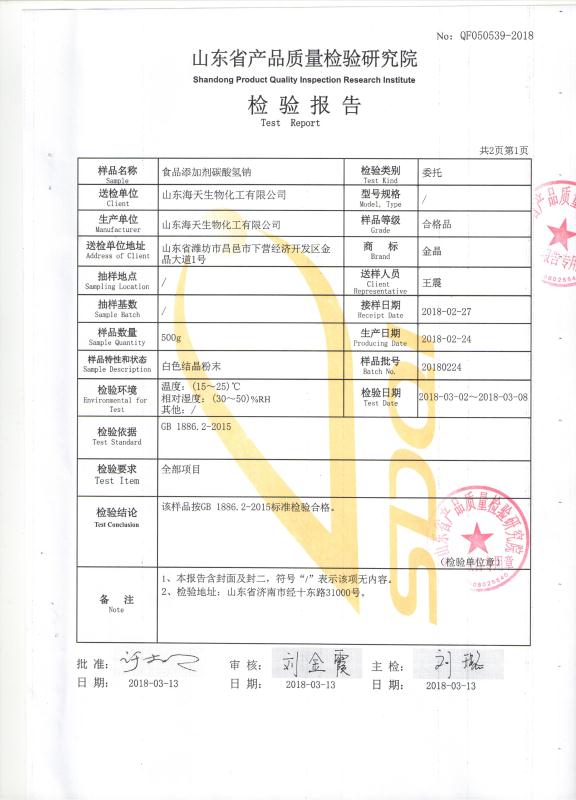 No: QF050539-2018
山东省产品质量检验研究院
Shandong Product Quality Inspection Research Institute
检 验 报 告
Test Report
共2页第1页
样品名称 食品添加剂碳酸氢钠 检验类别 委托
Sample Test Kind
送检单位 山东海天生物化工有限公司 型号规格 /
Client Model, Type
生产单位 山东海天生物化工有限公司 样品等级 合格品
Manufacturer Grade
送检单位地址 山东省潍坊市昌邑市下营经济开发区金晶大道1号 商 标 金晶
Address of Client Brand
抽样地点 / 送样人员 王震
Sampling Location Client Representative
抽样基数 / 接样日期 2018-02-27
Sample Batch Receipt Date
样品数量 500g 生产日期 2018-02-24
Sample Quantity Producing Date
样品特性和状态 白色结晶粉末 样品批号 20180224
Sample Description Batch No.
检验环境 温度: (15～25)℃
Environmental for Test 相对湿度: (30～50)%RH
其他: /
检验日期 2018-03-02～2018-03-08
Test Date
检验依据 GB 1886.2-2015
Test Standard
检验要求 全部项目
Test Item
检验结论 该样品按GB 1886.2-2015标准检验合格。
Test Conclusion
(检验单位章)
山东省产品质量检验研究院
备 注 1、本报告含封面及封二，符号“/”表示该项无内容。
Note 2、检验地址: 山东省济南市经十东路31000号。
批 准: 审 核: 刘金霞 主 检:
日 期: 2018-03-13 日 期: 2018-03-13 日 期: 2018-03-13